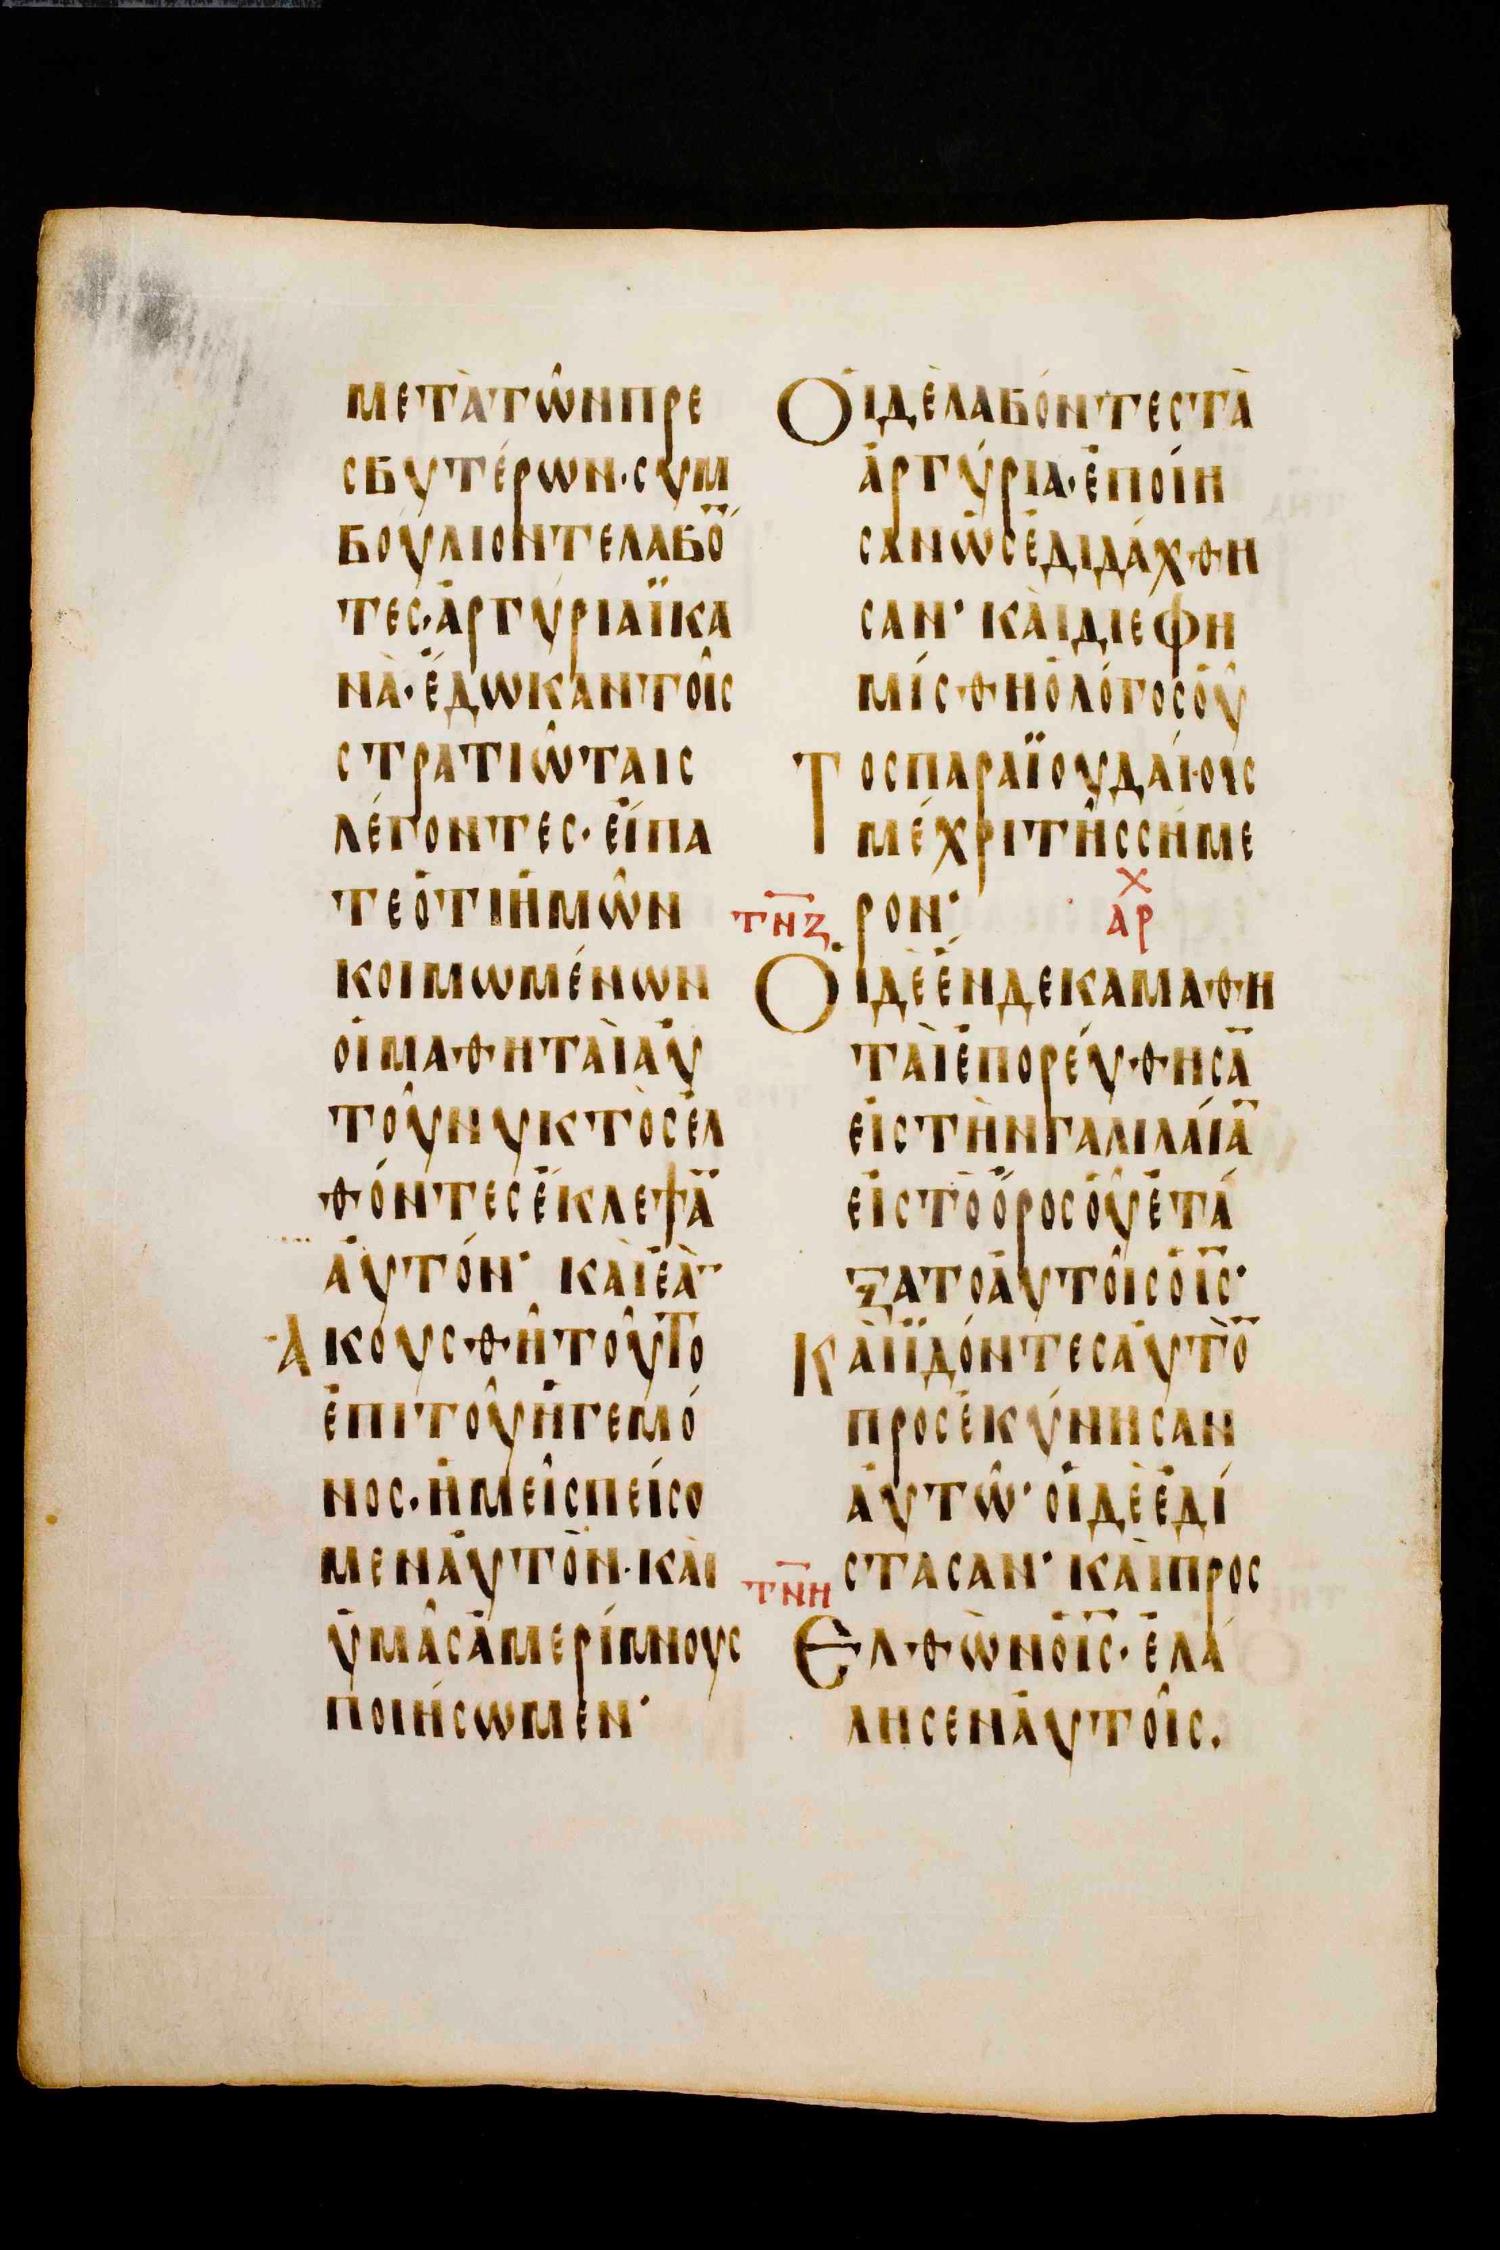 ΜΕΤᾺΤΩ͂ΝΠΡΕ
ΣΒΥΤΈΡΩΝ·ΣΥΜ
ΒΟΎΛΙΟΝΤΕΛΑΒΌ̅
ΤΕΣ·ἈΡΓΎΡΙΑΪΚΑ
ΝᾺ·ἜΔΩΚΑΝΤΟΙ͂Σ
ΣΤΡΑΤΙΩ͂ΤΑΙΣ
ΛΈΓΟΝΤΕΣ·ΕἼΠΑ
ΤΕὍΤΙἩΜΩ͂Ν
ΚΟΙΜΩΜΈΝΩΝ
ΟἹΜΑΘΗΤᾺΙΑΥ̓
ΤΟΥ͂ΝΥΚΤῸΣἘΛ
ΘΌΝΤΕΣἜΚΛΕΨΑ̅
ΑΥ̓ΤΌΝ· ΚᾺΙἘᾺ̅
ΑΚΟΥΣΘΗ͂ΤΟΥ͂ΤΟ
ἘΠΙΤΟΥ͂ἩΓΕΜΌ
ΝΟΣ·ἩΜΕΙ͂ΣΠΕΊΣΟ
ΜΕΝΑΥ̓ΤῸΝ·ΚᾺΙ
ὙΜΑ͂ΣἈΜΕΡΊΜΝΟΥΣ
ΠΟΙΉΣΩΜΕΝ·
ΟἹΔῈΛΑΒΌΝΤΕΣΤᾺ
ἈΡΓΎΡΙΑ·ἘΠΟΊΗ
ΣΑΝὩΣἘΔΙΔΆΧΘΗ
ΣΑΝ· ΚᾺΙΔΙΕΦΗ
ΜΊΣΘΗὉΛΌΓΟΣΟὟ
ΤΟΣΠΑΡΑΪΟΥΔΑΊΟΙΣ
ΜΈΧΡΙΤΗ͂ΣΣΉΜΕ
ΡΟΝ·
Χ
ΑΡ
ΤΝΖ
ΟἹΔῈἝΝΔΕΚΑΜΑΘΗ
ΤᾺΙἘΠΟΡΕΎΘΗΣΑ̅
ΕἸΣΤῊΝΓΑΛΙΛΑΊΑ̅
ΕἸΣΤῸὌΡΟΣΟὟἘΤΆ
ΞΑΤΟΑΥ̓ΤΟΙ͂ΣὉΙ̅Σ̅·
ΚᾺΙΪΔΌΝΤΕΣΑΥ̓ΤῸ̅
ΠΡΟΣΕΚΎΝΗΣΑΝ
ΑΥ̓ΤΩ͂· ΟἹΔῈἘΔΊ
ΣΤΑΣΑΝ· ΚᾺΙΠΡΟΣ
ΤΝΗ
ΕΛΘῺΝὉΙ̅Σ̅·ἘΛΆ
ΛΗΣΕΝΑΥ̓ΤΟΙ͂Σ.